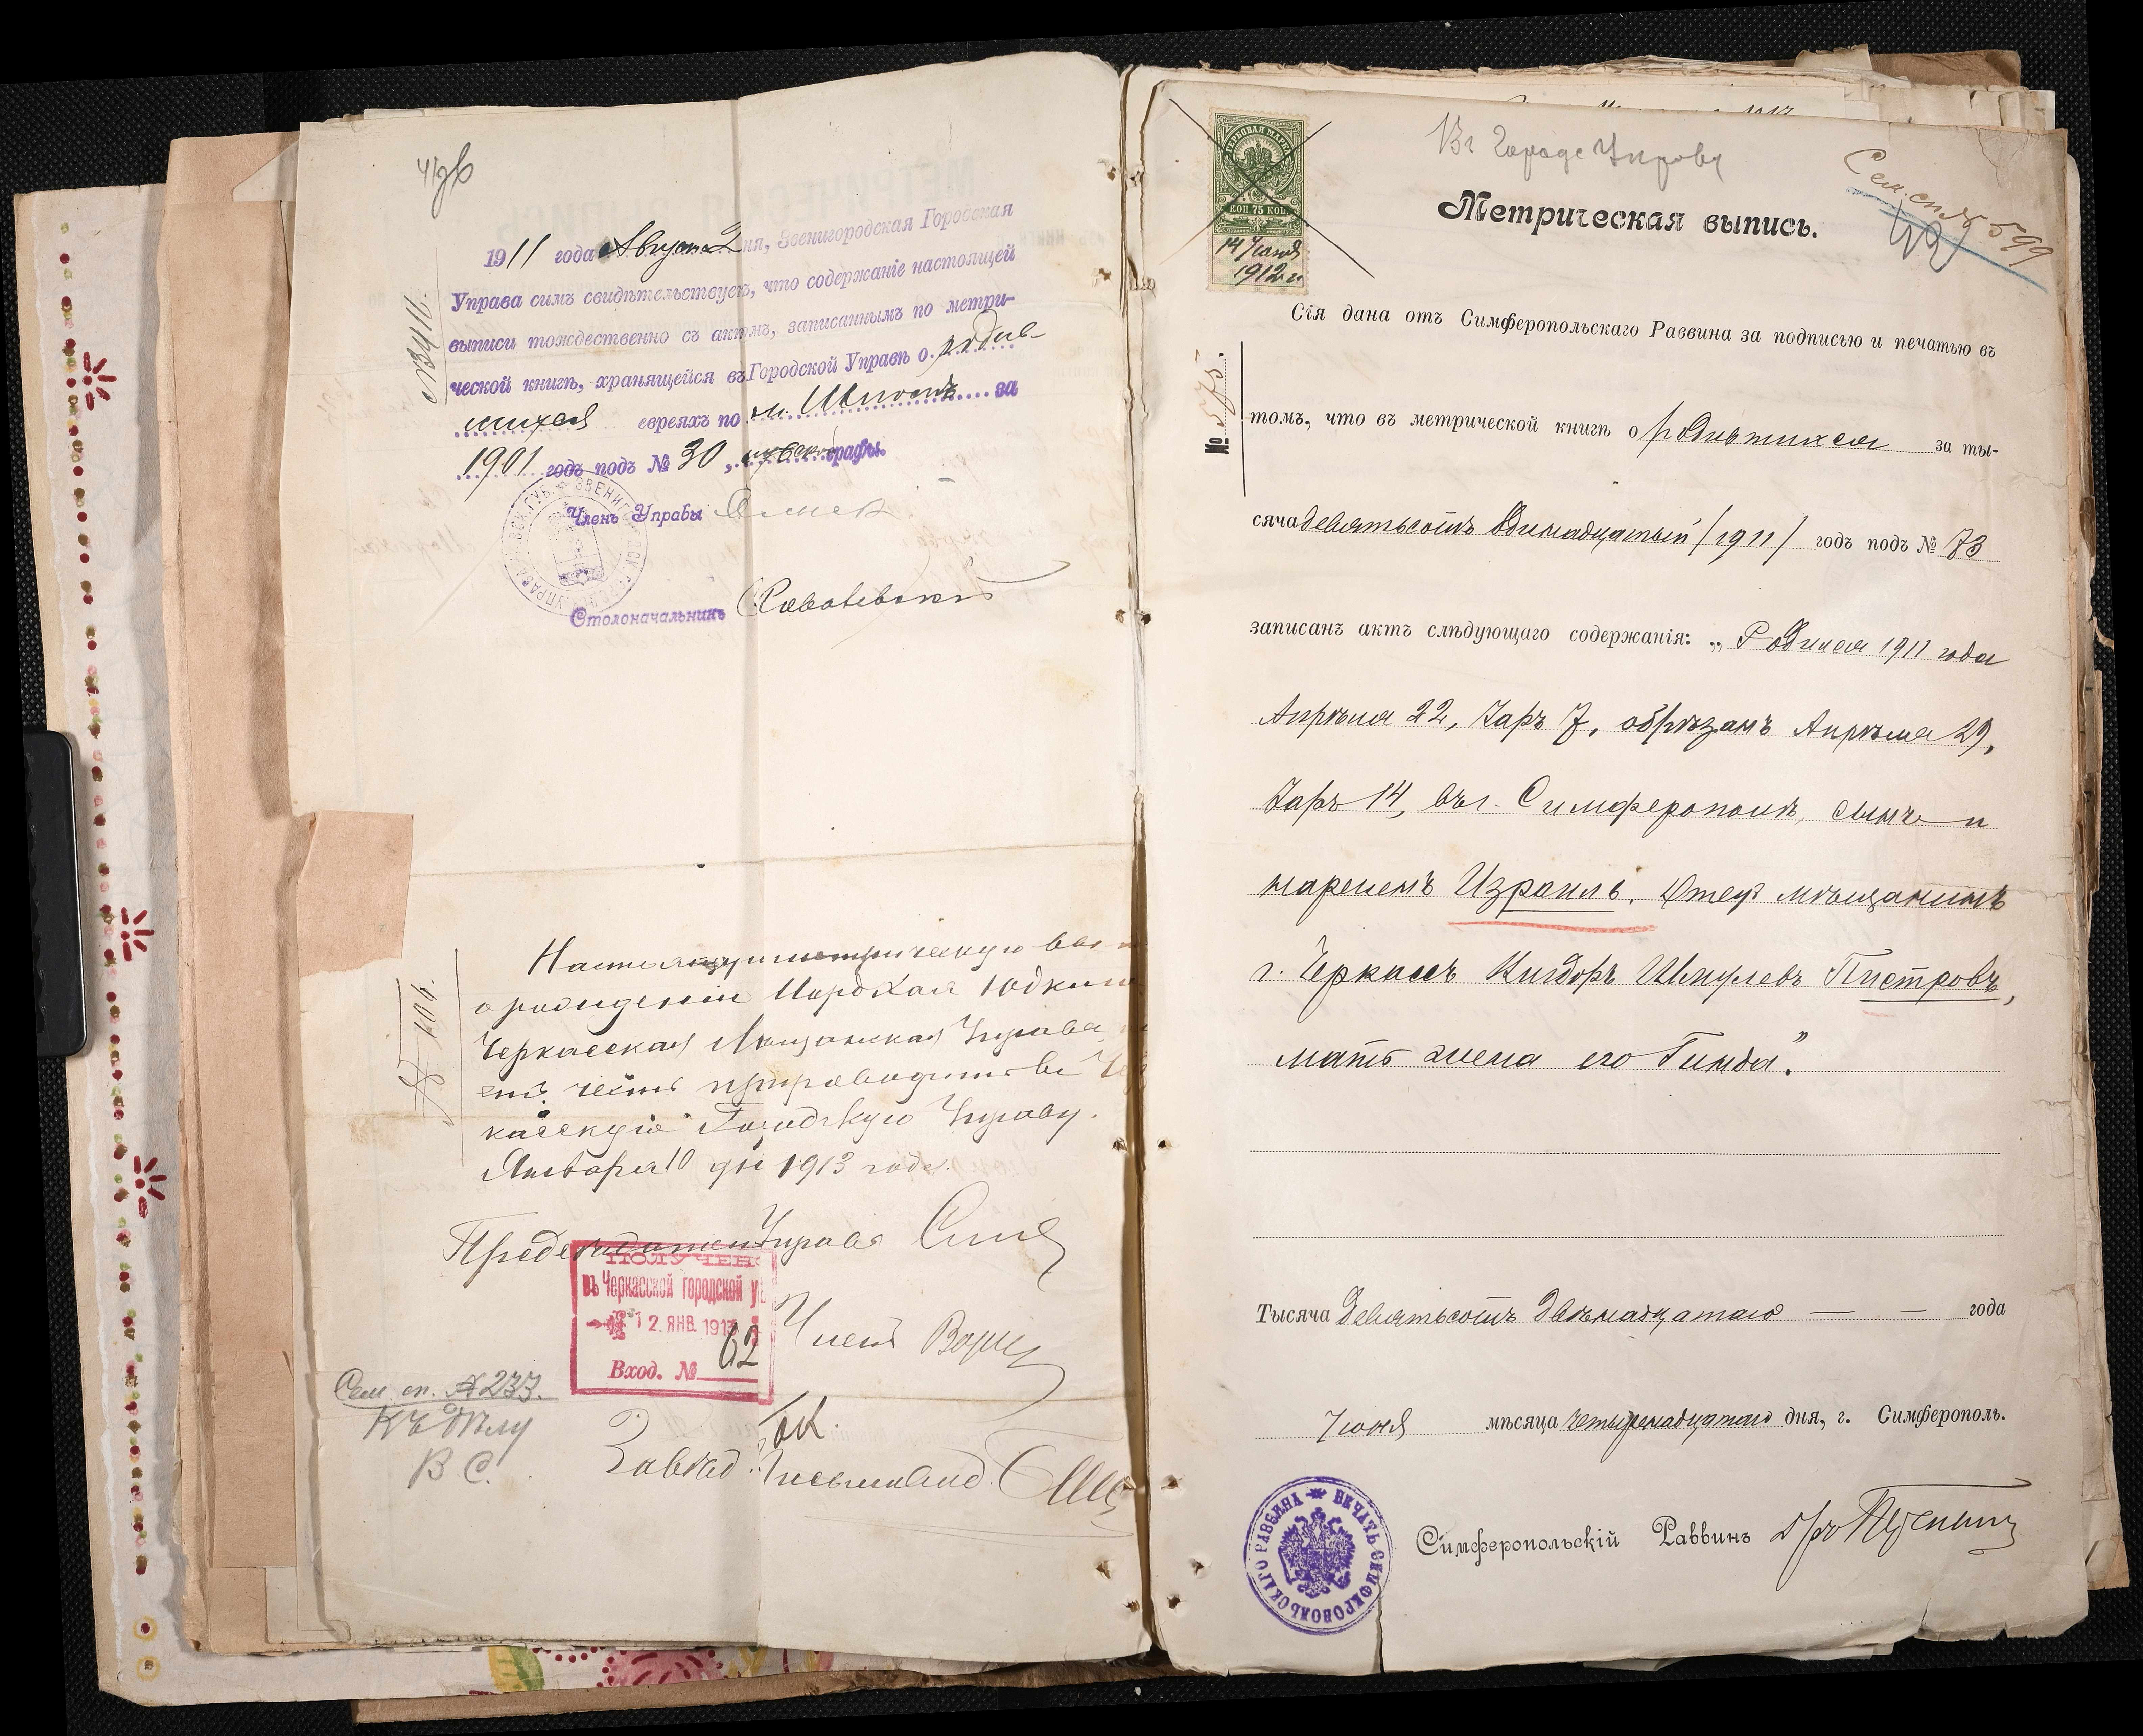 1911 года Августа 2 дня, Звенигородская Городская
Управа симъ свидѣтельствуетъ, что содержаніе настоящей
выписи тождественно съ актомъ, записаннымъ по метри-
ческой книгѣ, хранящейся въ Городской Управѣ о родив-
шихся евреяхъ по м. Шполѣ за
1901 годъ подъ № 30, мужской графы.
№ 3416.
Членъ Управы
Столоначальникъ
Настоящую метрическую вы
о рождении Мордхая Юдки
Черкасская Мѣщанская Управа
етъ честь препроводить въ Че
касскую Городскую Управу.
Января 10 дня 1913 года.
№ 106.
Председатель Управы
ПОЛУЧЕНО
въ Черкасской городской у
12. ЯНВ. 191
Вход. № 62
Членъ
Сем. сп. № 237.
Къ дѣлу
В С.
Завѣд. Письмовод.
Въ Городс Управу
КОП. 75 КОП.
14 Іюня
1912 г.
Сем. сп. № 599
Метрическая выпись.
Сія дана отъ Симферопольскаго Раввина за подписью и печатью въ
№ 575.
томъ, что въ метрической книгѣ о родившихся за ты-
сяча девятьсотъ одинадцатый /1911/ годъ подъ № 73
записанъ актъ слѣдующаго содержанія: „Родился 1911 года
Апрѣля 22, Іаръ 7, обрѣзанъ Апрѣля 29,
Іаръ 14, въ г. Симферополѣ, сынъ и
нареченъ Израиль. Отецъ мѣщанинъ
г. Черкассъ Кигдоръ Шмулевъ Пистровъ,
мать жена его Гинда".
Тысяча девятьсотъ двѣнадцатаго — — года
Іюня мѣсяца четырнадцатаго дня, г. Симферополь.
ПЕЧАТЬ СИМФЕРОПОЛЬСКАГО РАВВИНА
Симферопольскій Раввинъ